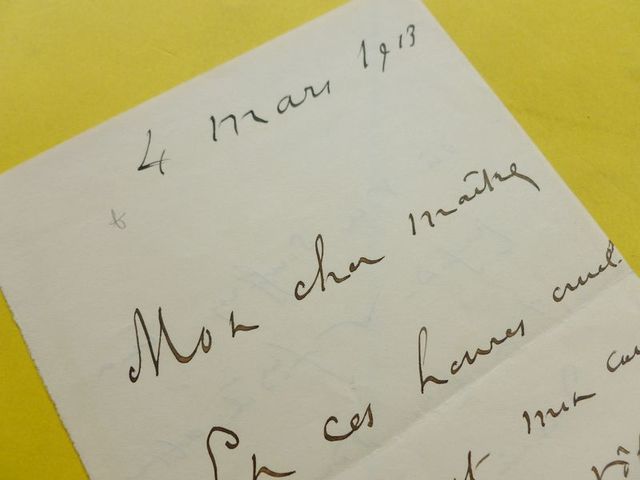 4 mars 1913
Mon cher maître
En ces heures cruel
t mon cœu